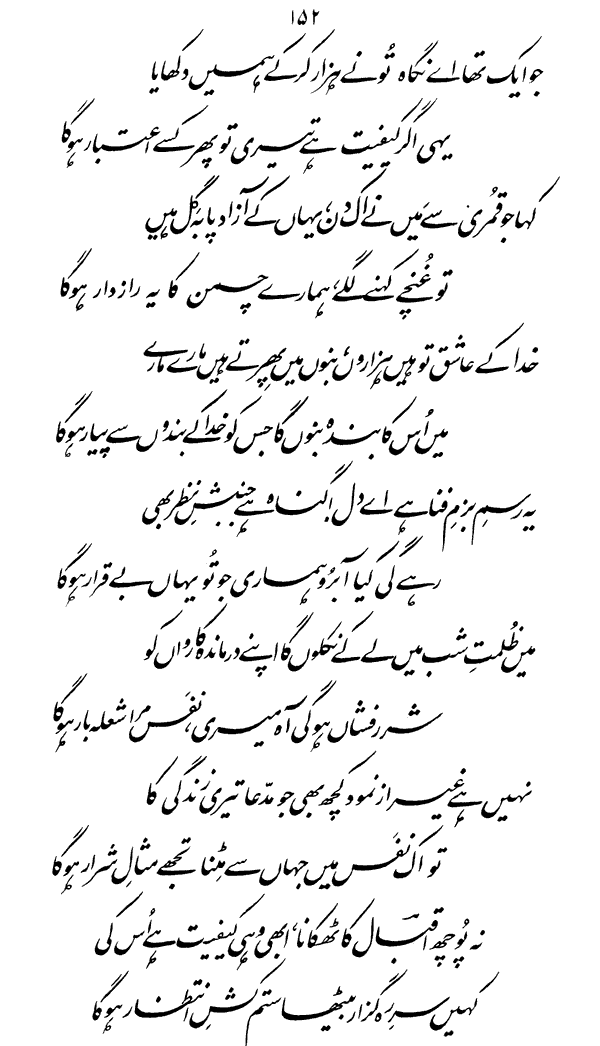 ۱۵۲
جو ایک تھا اے نگاہ تُو نے ہزار کر کے ہمیں دکھایا
یہی اگر کیفیت ہے تیری تو پھر کسے اعتبار ہوگا
کہا جو قمُری سے مَیں نے اک دن، یہاں کے آزاد پا بہ گِل ہیں
تو غُنچے کہنے لگے، ہمارے چمن کا یہ رازدار ہوگا
خدا کے عاشق تو ہیں ہزاروں، بنوں میں پھِرتے ہیں مارے مارے
میں اُس کا بندہ بنوں گا جس کو خدا کے بندوں سے پیار ہوگا
یہ رسمِ بزمِ فنا ہے اے دل! گناہ ہے جُنبشِ نظر بھی
رہے گی کیا آبرُو ہماری جو تُو یہاں بے قرار ہوگا
میں ظُلمتِ شب میں لے کے نکلوں گا اپنے درماندہ کارواں کو
شررفشاں ہوگی آہ میری، نفَس مرا شعلہ بار ہوگا
نہیں ہے غیر از نمود کچھ بھی جو مدّعا تیری زندگی کا
تو اک نفَس میں جہاں سے مِٹنا تجھے مثالِ شرار ہوگا
نہ پُوچھ اقبالؔ کا ٹھکانا، ابھی وہی کیفیت ہے اُس کی
کہیں سرِ رہ گزار بیٹھا ستم کشِ انتظار ہوگا